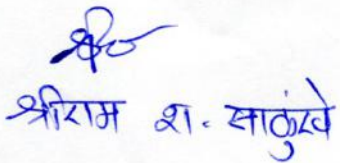 श्रीराम श. साळुंखे